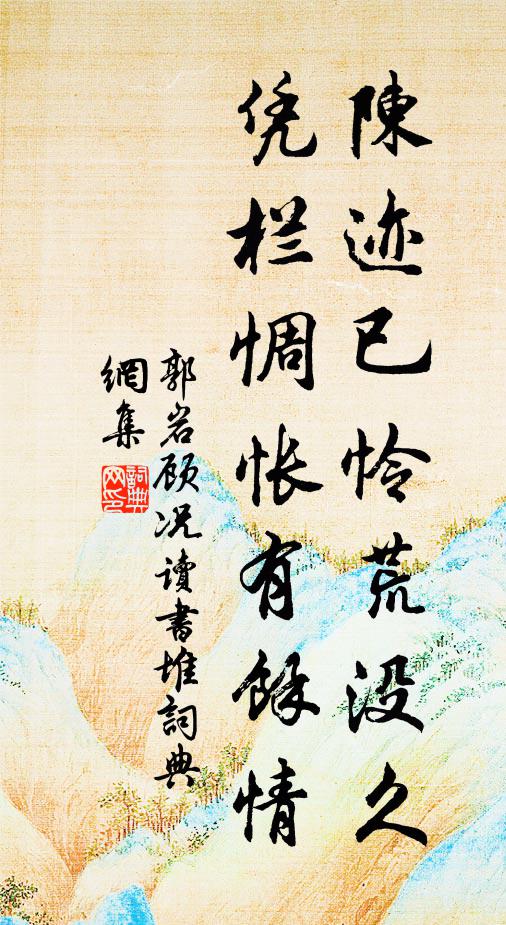 陳迹已怜荒没久
凭栏惆怅有餘情
郭岩顾况读書堆詞典
網集
詞典
网印